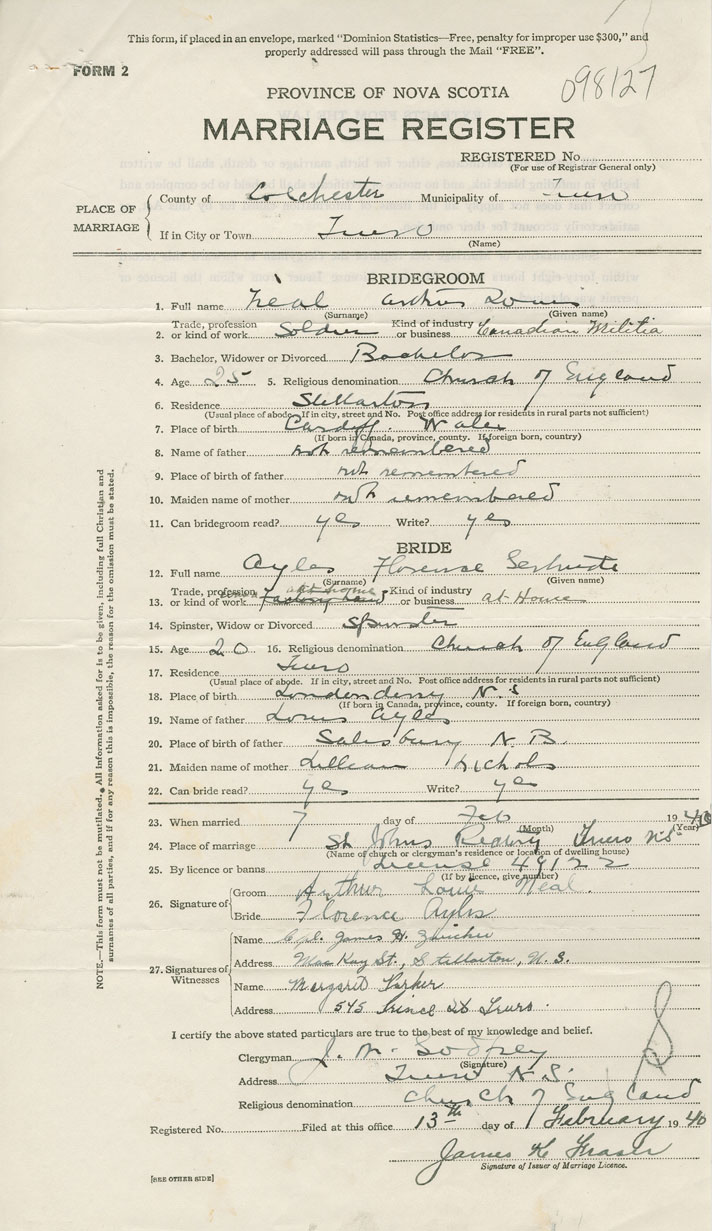 This form, if placed in an envelope, marked "Dominion Statistics—Free, penalty for improper use $300," and
properly addressed will pass through the Mail "FREE".
FORM 2
098127
PROVINCE OF NOVA SCOTIA
MARRIAGE REGISTER
REGISTERED No.
(For use of Registrar General only)
PLACE OF MARRIAGE
County of Colchester Municipality of Truro
If in City or Town Truro
(Name)
BRIDEGROOM
1. Full name Neal Arthur Louis
(Surname) (Given name)
2. Trade, profession or kind of work Soldier Kind of industry or business Canadian Militia
3. Bachelor, Widower or Divorced Bachelor
4. Age 25 5. Religious denomination Church of England
6. Residence Stellarton
(Usual place of abode. If in city, street and No. Post office address for residents in rural parts not sufficient)
7. Place of birth Cardiff. Wales
(If born in Canada, province, county. If foreign born, country)
8. Name of father not remembered
9. Place of birth of father not remembered
10. Maiden name of mother not remembered
11. Can bridegroom read? yes Write? yes
BRIDE
12. Full name Ayles Florence Gertrude
(Surname) (Given name)
13. Trade, profession or kind of work Factory hand at home Kind of industry or business at Home
14. Spinster, Widow or Divorced Spinster
15. Age 20 16. Religious denomination Church of England
17. Residence Truro
(Usual place of abode. If in city, street and No. Post office address for residents in rural parts not sufficient)
18. Place of birth Londonderry N.S
(If born in Canada, province, county. If foreign born, country)
19. Name of father Louis Ayles
20. Place of birth of father Salisbury N.B.
21. Maiden name of mother Lillian Nichols
22. Can bride read? yes Write? yes
23. When married 7 day of Feb 1940
(Month) (Year)
24. Place of marriage St Johns Rectory Truro NS
(Name of church or clergyman's residence or location of dwelling house)
25. By licence or banns License 49122
(If by licence, give number)
26. Signature of
Groom Arthur Louis Neal.
Bride Florence Ayles
27. Signatures of Witnesses
Name Cpl. James H. Zwicker
Address MacKay St., Stellarton, N.S.
Name Margaret Parker
Address 545 Prince St Truro.
I certify the above stated particulars are true to the best of my knowledge and belief.
Clergyman J. M. Godfrey
(Signature)
Address Truro N.S.
Religious denomination Church of England
Registered No. Filed at this office 13th day of February 1940
James K Fraser
Signature of Issuer of Marriage Licence.
[SEE OTHER SIDE]
NOTE.—This form must not be mutilated. All information asked for is to be given, including full Christian and
surnames of all parties, and if for any reason this is impossible, the reason for the omission must be stated.